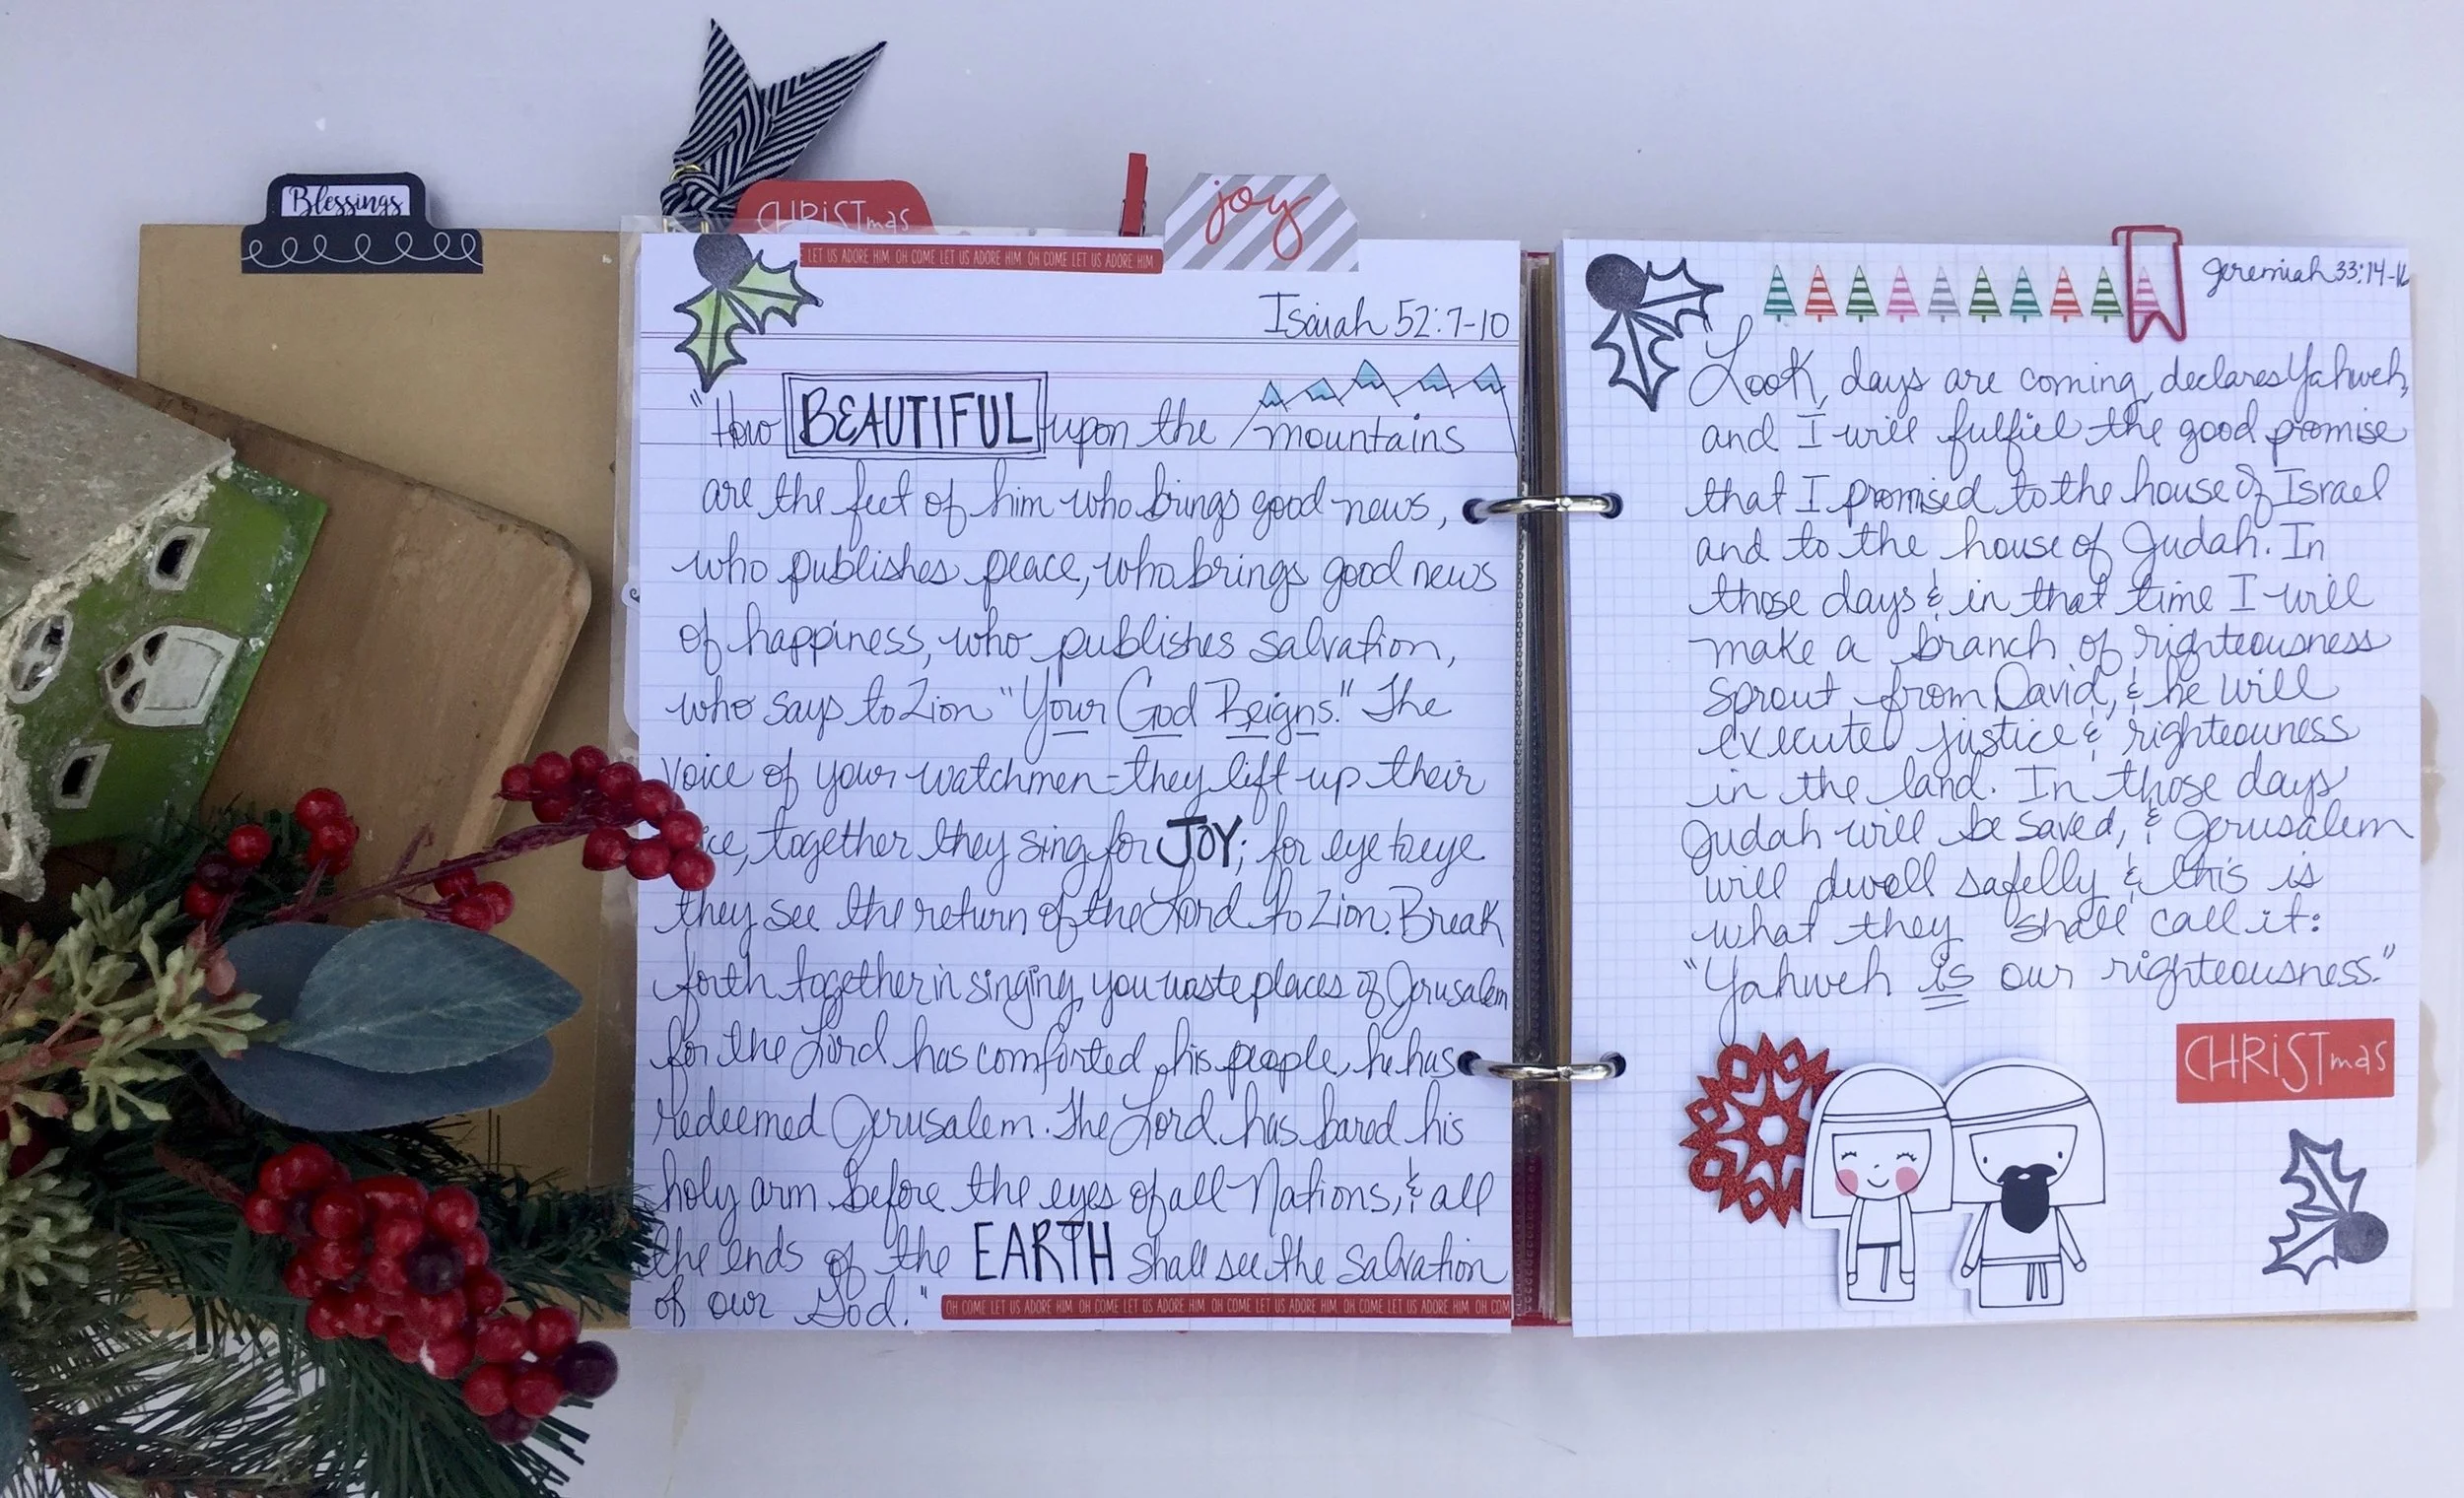 Blessings
CHRISTmas
joy
LET US ADORE HIM OH COME LET US ADORE HIM OH COME LET US ADORE HIM
Isaiah 52:7-10
"How BEAUTIFUL upon the mountains
are the feet of him who brings good news,
who publishes peace, who brings good news
of happiness, who publishes salvation,
who says to Zion "Your God Reigns." The
voice of your watchmen-they lift up their
ce, together they sing for JOY; for eye to eye
they see the return of the Lord to Zion. Break
forth together in singing, you waste places of Jerusalem
for the Lord has comforted his people, he has
redeemed Jerusalem. The Lord has bared his
holy arm before the eyes of all Nations, & all
the ends of the EARTH shall see the salvation
of our God."
OH COME LET US ADORE HIM OH COME LET US ADORE HIM OH COME LET US ADORE HIM OH COME LET US ADORE HIM OH COM
Jeremiah 33:14-16
Look, days are coming, declares Yahweh,
and I will fulfill the good promise
that I promised to the house of Israel
and to the house of Judah. In
those days & in that time I will
make a branch of righteousness
sprout from David, & he will
execute justice & righteouness
in the land. In those days
Judah will be saved, & Jerusalem
will dwell safelly & this is
what they shall call it:
"Yahweh is our righteousness."
CHRISTmas